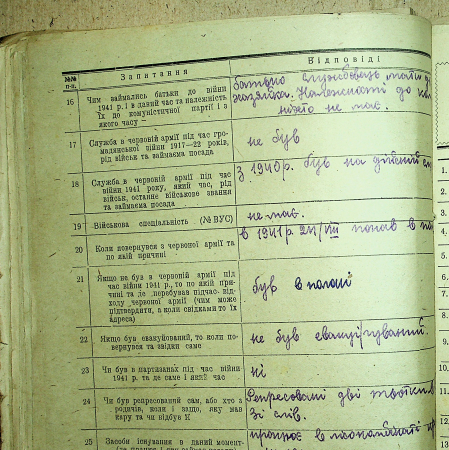 №№ п-п.
Запитання
Відповіді
16
Чим займались батьки до війни
1941 р. і в даний час та належність
їх до комуністичної партії і з
якого часу
батько службовець, мати до-
Належності до
не має.
17
Служба в червоній армії під час гро-
мадянської війни 1917—22 років,
рід військ та займаєма посада
не був
18
Служба в червоній армії під час
війни 1941 року, який час, рід
військ, останнє військове звання
та займаєма посада
з 1940р. був на дійсній
19
Військова спеціальність (№ ВУС)
не має.
20
Коли повернувся з червоної армії та
по якій причині
в 1941р 24/VIII попав в по
21
Якщо не був в червоній армії під
час війни 1941 р., то по якій при-
чині та де перебував підчас від-
ходу червоної армії (чим може
підтвердити, а коли свідками то їх
адреса)
був в полоні
22
Якщо був евакуйований, то коли по-
вернувся та звідки саме
не був евакуйований.
23
Чи був в партизанах під час війни
1941 р. та де саме і який час
ні
24
Чи був репресований сам, або хто з
родичів, коли і защо, яку мав
кару та чи відбув її
Репресовані дві
Зі слів.
25
Засоби існування в даний момент
в
1.
2.
3.
4.
5.
6.
7.
8.
9.
10.
11.
12.
13